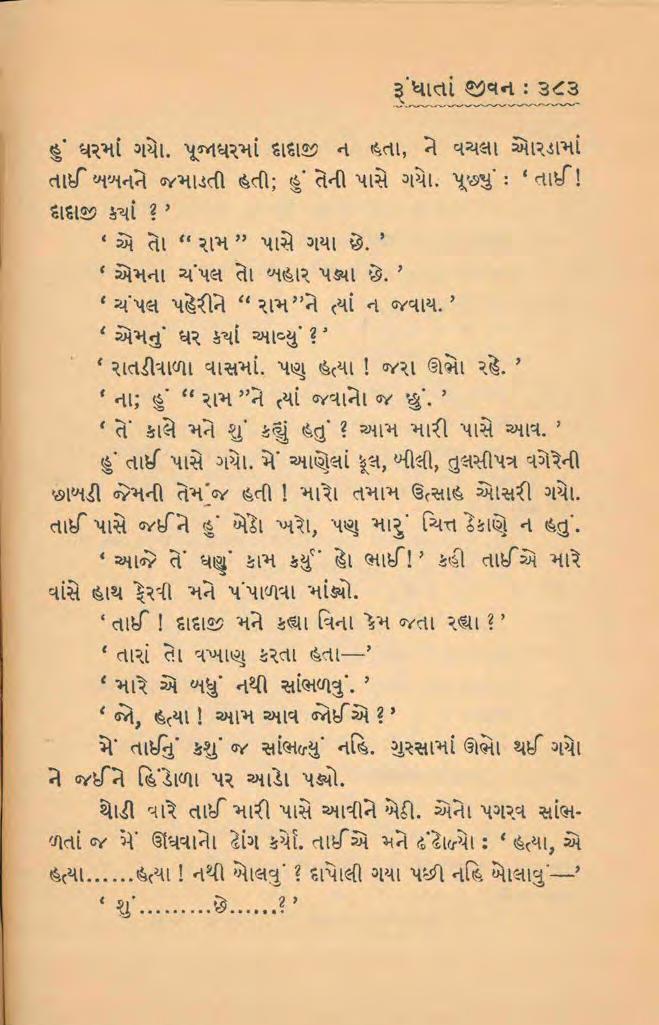 રૂંધાતાં જીવન : ૩૮૩
હું ઘરમાં ગયો. પૂજાઘરમાં દાદાજી ન હતા, ને વચલા ઓરડામાં
તાઈ બબનને જમાડતી હતી; હું તેની પાસે ગયો. પૂછ્યું : ‘ તાઈ !
દાદાજી ક્યાં ? ’
‘ એ તો “ રામ ” પાસે ગયા છે. ’
‘ એમના ચંપલ તો બહાર પડ્યા છે. ’
‘ ચંપલ પહેરીને “ રામ”ને ત્યાં ન જવાય. ’
‘ એમનું ઘર ક્યાં આવ્યું ?’
‘ રાતડીવાળા વાસમાં. પણ હત્યા ! જરા ઊભો રહે. ’
‘ ના; હું “ રામ ”ને ત્યાં જવાનો જ છું. ’
‘ તેં કાલે મને શું કહ્યું હતું ? આમ મારી પાસે આવ. ’
હું તાઈ પાસે ગયો. મેં આણેલાં ફૂલ, બીલી, તુલસીપત્ર વગેરેની
છાબડી જેમની તેમ જ હતી ! મારો તમામ ઉત્સાહ ઓસરી ગયો.
તાઈ પાસે જઈને હું બેઠો ખરો, પણ મારું ચિત્ત ઠેકાણે ન હતું.
‘ આજે તેં ઘણું કામ કર્યું હો ભાઈ!’ કહી તાઈએ મારે
વાંસે હાથ ફેરવી મને પંપાળવા માંડ્યો.
‘ તાઈ ! દાદાજી મને કહ્યા વિના કેમ જતા રહ્યા ?’
‘ તારાં તો વખાણ કરતા હતા—’
‘ મારે એ બધું નથી સાંભળવું. ’
‘ જો, હત્યા ! આમ આવ જોઈએ ?’
મેં તાઈનું કશું જ સાંભળ્યું નહિ. ગુસ્સામાં ઊભો થઈ ગયો
ને જઈને હિંડોળા પર આડો પડ્યો.
થોડી વારે તાઈ મારી પાસે આવીને બેઠી. એનો પગરવ સાંભ-
ળતાં જ મેં ઊંઘવાનો ઢોંગ કર્યો. તાઈએ મને ઢંઢોળ્યો : ‘ હત્યા, એ
હત્યા......હત્યા ! નથી બોલવું ? દાપોલી ગયા પછી નહિ બોલાવું—’
‘ શું.........છે......?’